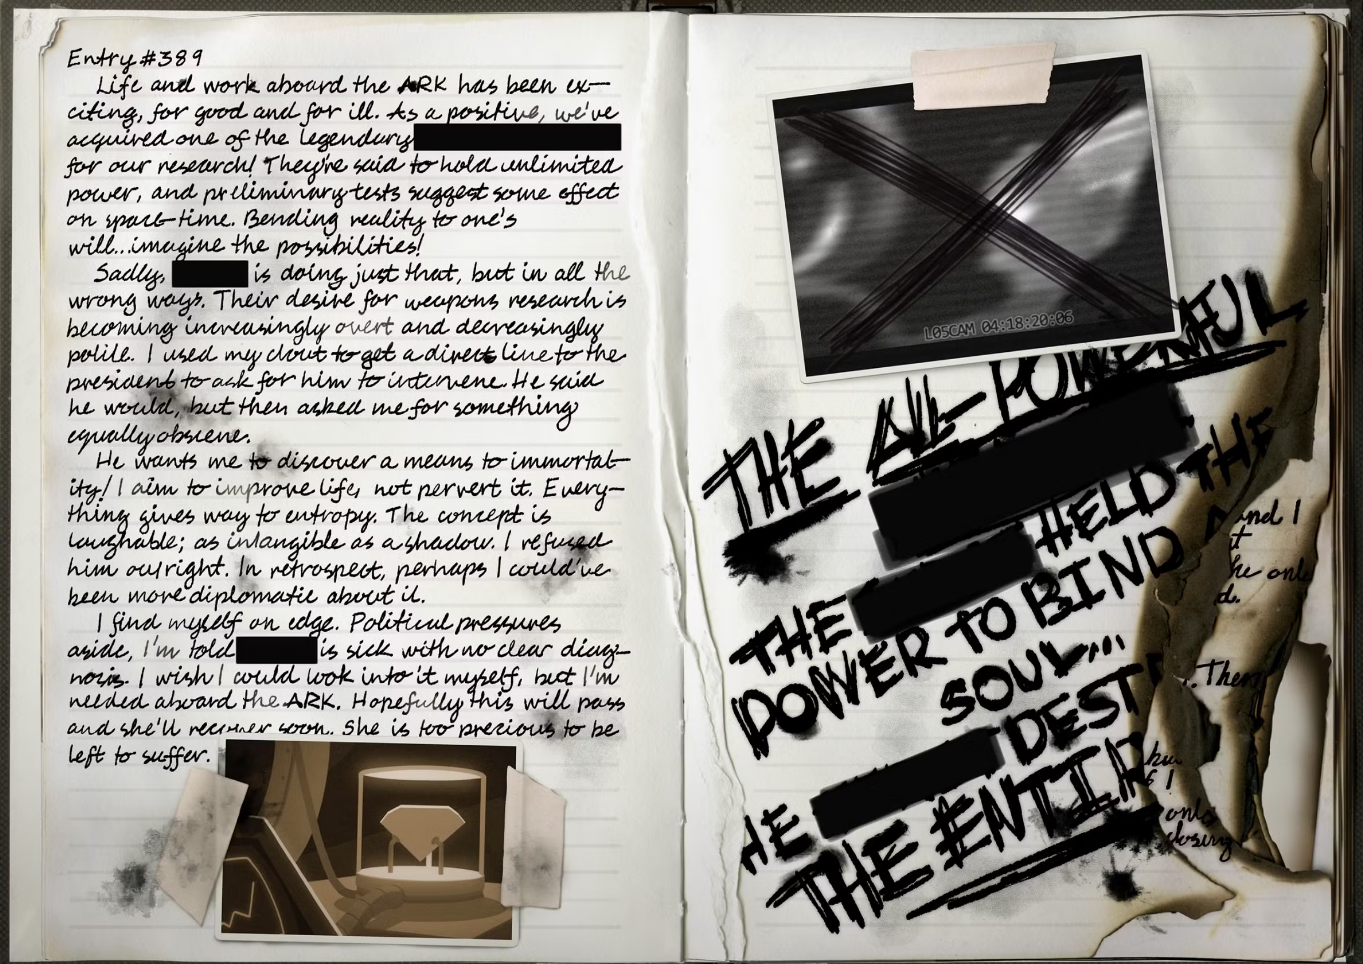 Entry #389
Life and work aboard the ARK has been ex-
citing, for good and for ill. As a positive, we've
acquired one of the legendary
for our research! They're said to hold unlimited
power, and preliminary tests suggest some effect
on space-time. Bending reality to one's
will...imagine the possibilities!
Sadly, is doing just that, but in all the
wrong ways. Their desire for weapons research is
becoming increasingly overt and decreasingly
polite. I used my clout to get a direct line to the
president to ask for him to intervene. He said
he would, but then asked me for something
equally obscene.
He wants me to discover a means to immortal-
ity! I aim to improve life, not pervert it. Every-
thing gives way to entropy. The concept is
laughable; as intangible as a shadow. I refused
him outright. In retrospect, perhaps I could've
been more diplomatic about it.
I find myself on edge. Political pressures
aside, I'm told is sick with no clear diag-
nosis. I wish I could look into it myself, but I'm
needed aboard the ARK. Hopefully this will pass
and she'll recover soon. She is too precious to be
left to suffer.
L05CAM 04:18:20:06
THE ALL-POWERFUL
HELD THE
THE
POWER TO BIND A
SOUL...
HE DEST
THE ENTIR
and I
he only
d.
. There
only
closing